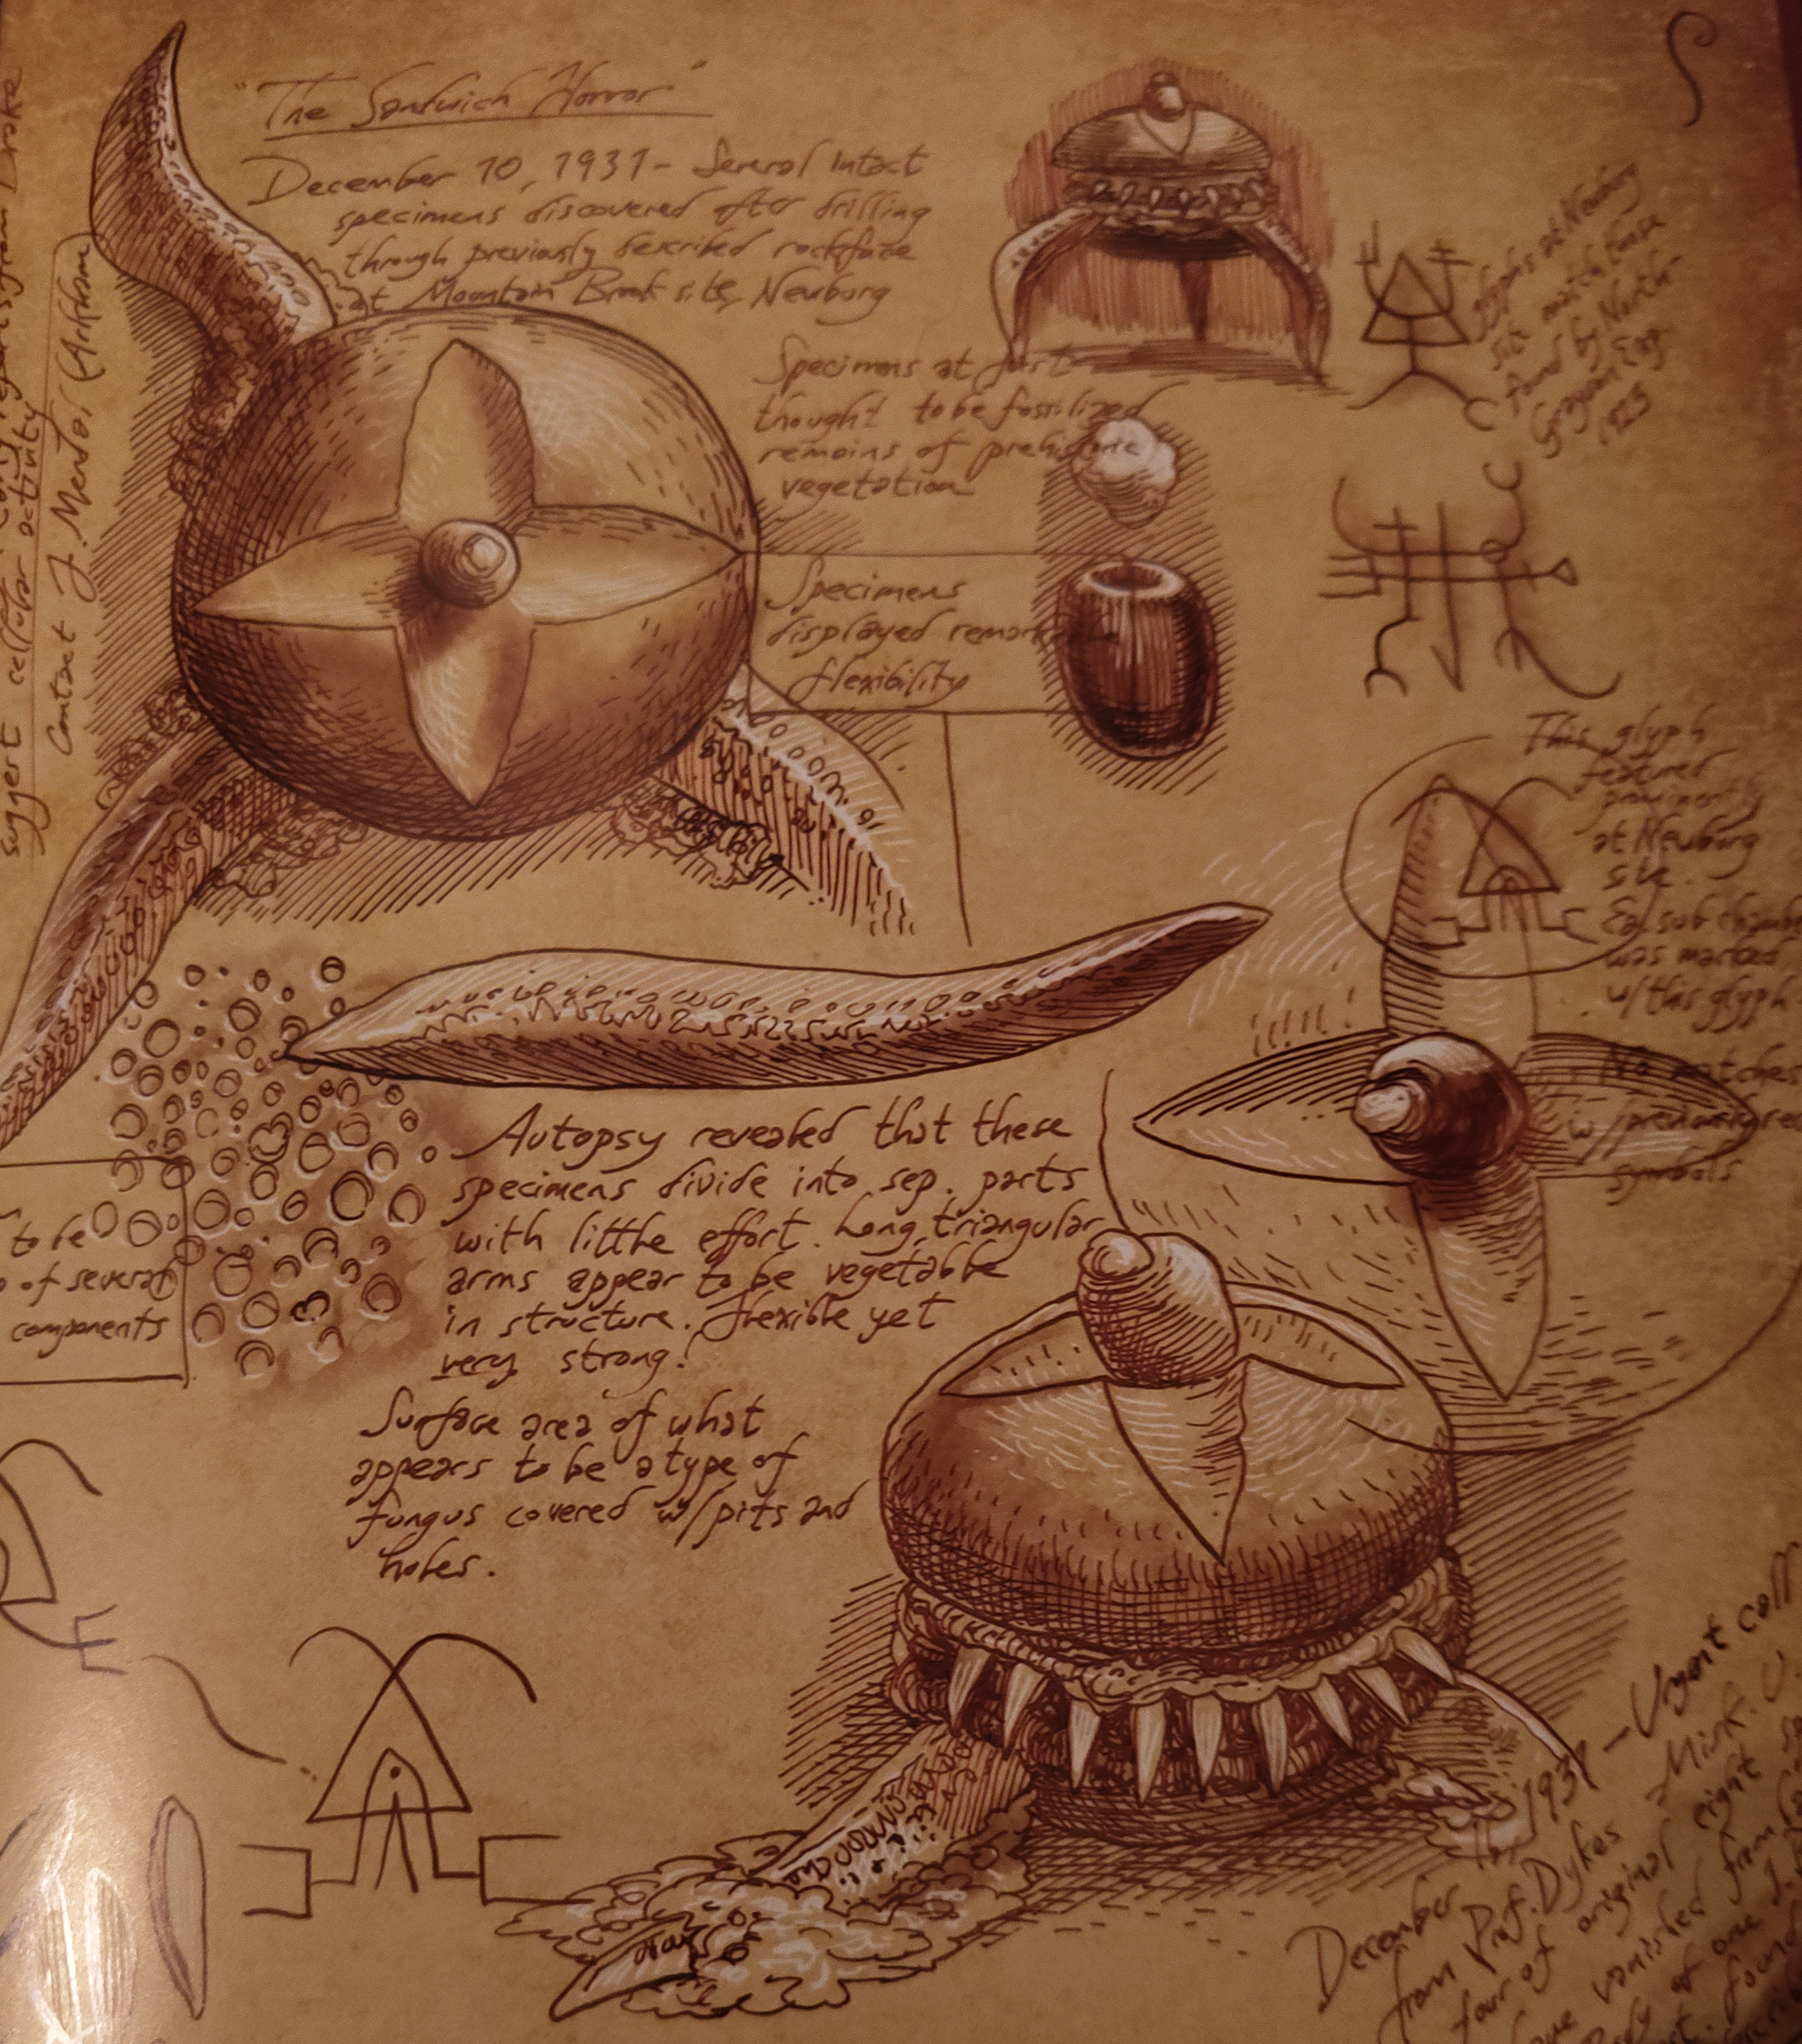 "The Sandwich Horror"
December 10, 1931 - Several Intact
specimens discovered after drilling
through previously described rockface
at Mountain Brook site, Newburg
Specimens at first
thought to be fossilized
remains of prehistoric
vegetation
Specimens
displayed remark
flexibility
glyphs at Newburg
site match those
found by North-
Grayson Exp.
1923
This glyph
featured
prominently
at Newburg
site.
Ea. sub chamber
was marked
w/this glyph
No matches
w/
symbols
from Drake
suggest cellular activity
Contact J. (Arkham
Autopsy revealed that these
specimens divide into sep. parts
with little effort. Long, triangular
arms appear to be vegetable
in structure. flexible yet
very strong!
Surface area of what
appears to be a type of
fungus covered w/pits and
holes.
to be
of several
components
December 1931 - Urgent call
from Prof. Dykes Misk. U.
four of original eight
vanished from
of one
found